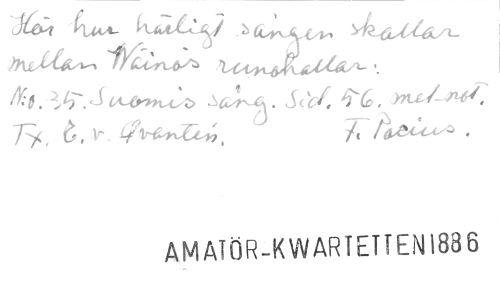 Hör hur härligt sången skallar
mellan Wäinös runohallar:
N:o. 35. Suomis sång. Sid. 56. med not.
Tx. E. v. Qvanten. F. Pacius.
AMATÖR-KWARTETTEN 1886